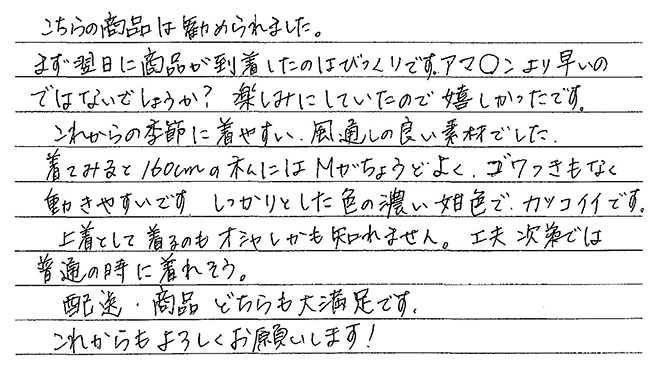 こちらの商品は勧められました。
まず翌日に商品が到着したのはびっくりです。アマ〇ンより早いの
ではないでしょうか？ 楽しみにしていたので嬉しかったです。
これからの季節に着やすい、風通しの良い素材でした。
着てみると160cmの私にはMがちょうどよく、ゴワつきもなく
動きやすいです しっかりとした色の濃い紺色で、カッコイイです。
上着として着るのもオシャレかも知れません。工夫次第では
普通の時に着れそう。
配送・商品 どちらも大満足です。
これからもよろしくお願いします！